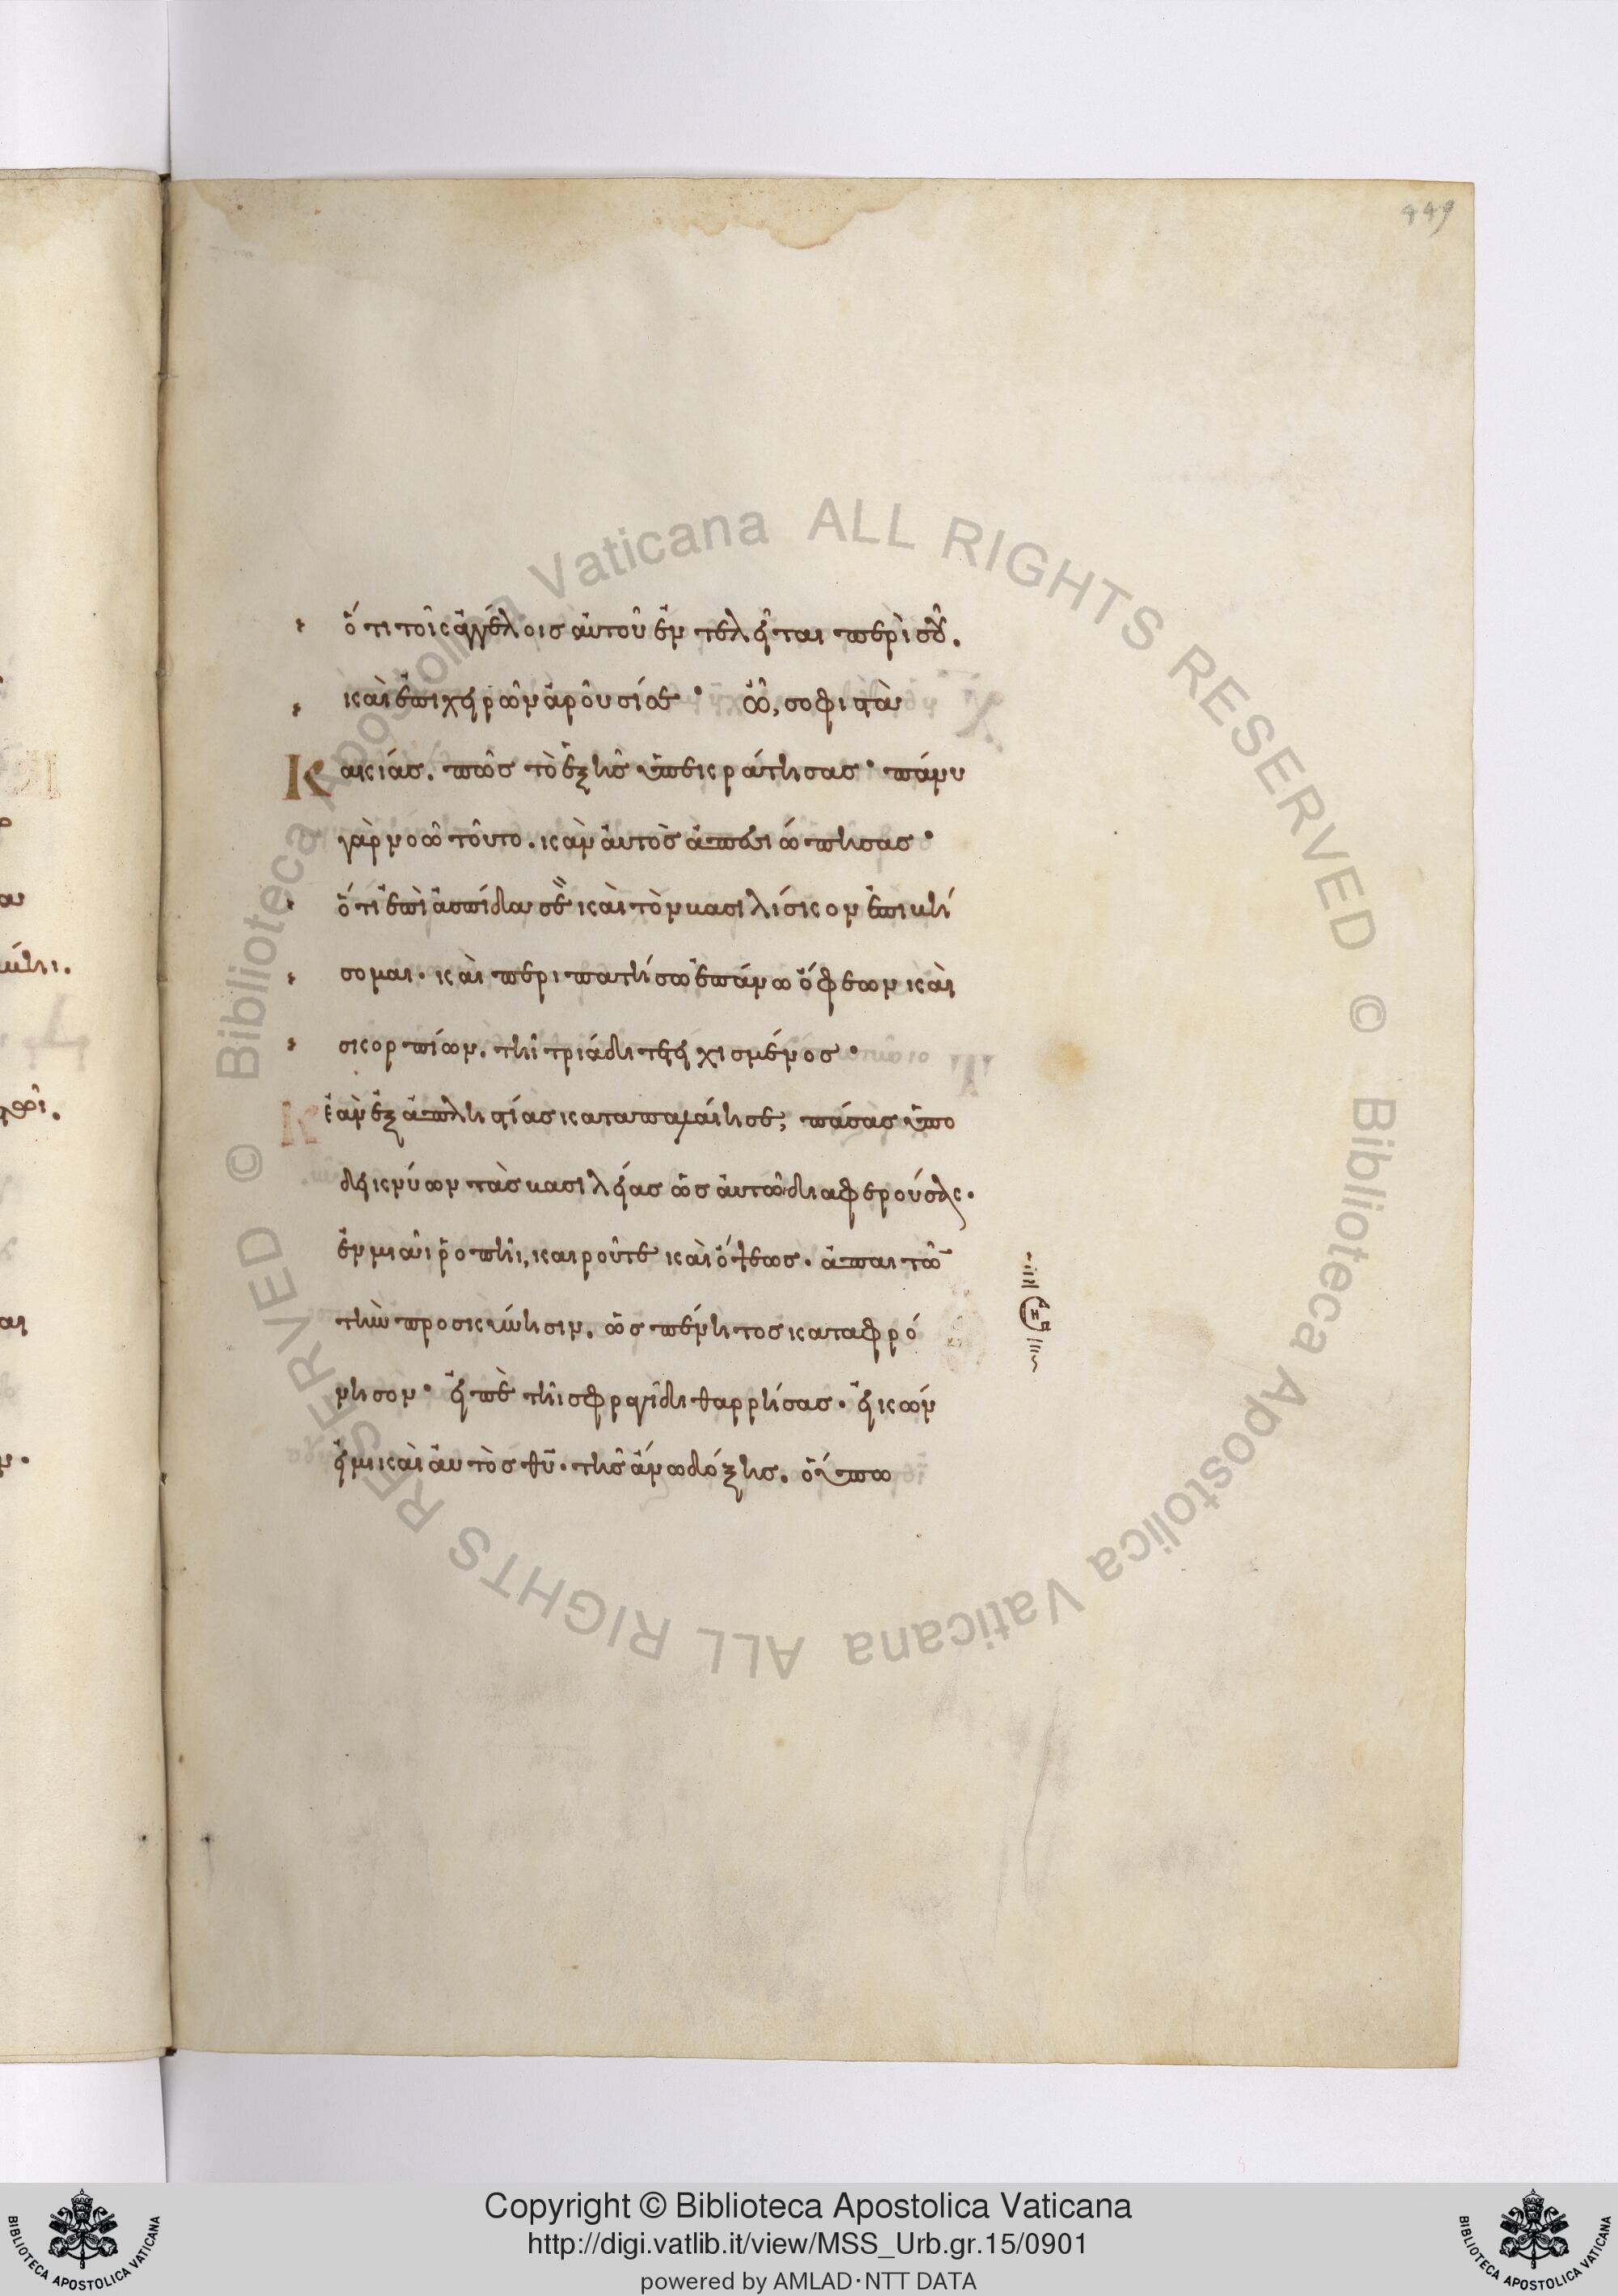 449
ὅτι τοῖς ἀγγέλοις αὐτοῦ ἐντελεῖται περὶ σοῦ.
καὶ ἐπὶ χειρῶν ἀροῦσί σε· ὦ, σοφιστὰ
κακίας. πῶς τὸ ἑξῆς ὑπεκράτησας· πάνυ
γὰρ νοῶ τοῦτο. κἂν αὐτὸς ἀπεσιώπησας·
ὅτι ἐπὶ ἀσπίδα σὲ καὶ τὸν βασιλίσκον ἐπιβή
σομαι. καὶ περιπατήσω ἐπάνω ὄφεων καὶ
σκορπίων. τῆι τριάδι τετειχισμένος·
ἐὰν ἐξ ἀπληστίας καταπαλαίηι σε, πάσας ὑπο
δεικνύων τὰς βασιλείας ὡς αὐτῶ διαφερούσας.
ἐν μιᾶι ῥοπῆι, καιροῦ τε καὶ ὄψεως. ἀπαιτῶν
τὴν προσκύνησιν. ὡς πένητος καταφρό
νησον· εἰπὲ τῆι σφραγίδι θαρρήσας. εἰκών
εἰμι καὶ αὐτὸς θῡ. τῆς ἄνω δόξης. οὔπω
Copyright © Biblioteca Apostolica Vaticana
http://digi.vatlib.it/view/MSS_Urb.gr.15/0901
powered by AMLAD·NTT DATA
BIBLIOTECA APOSTOLICA VATICANA
BIBLIOTECA APOSTOLICA VATICANA
© Biblioteca Apostolica Vaticana ALL RIGHTS RESERVED
© Biblioteca Apostolica Vaticana ALL RIGHTS RESERVED